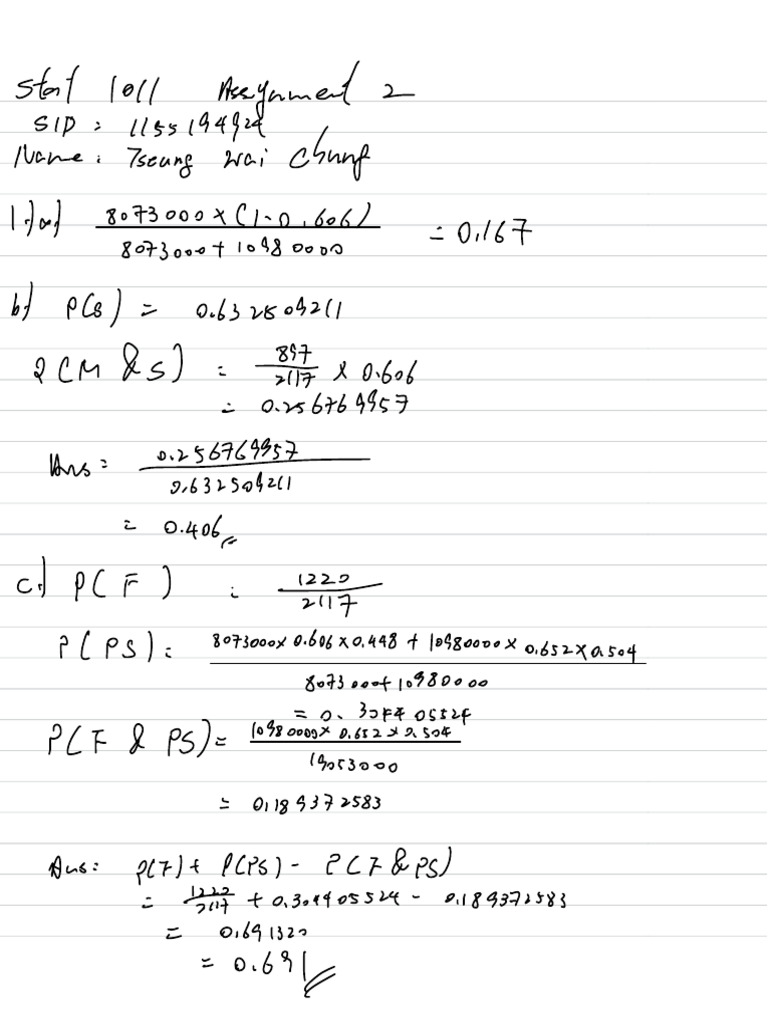 Stat 1011 Assignment 2
SID : 1155194924
Name : Tseung Wai Chung
1.)a) 8073000 x (1-0.606)
8073000 + 10980000 = 0.167
b) P(S) = 0.632509211
P(M & S) = 897
2117 x 0.606
= 0.256769957
Ans = 0.256769957
0.632509211
= 0.406
c.) P(F) : 1220
2117
P(PS) : 8073000 x 0.606 x 0.448 + 10980000 x 0.652 x 0.504
8073000 + 10980000
= 0.304405524
P(F & PS) = 10980000 x 0.652 x 0.504
19053000
= 0.189372583
Ans: P(F) + P(PS) - P(F & PS)
= 1220
2117 + 0.304405524 - 0.189372583
= 0.691320
= 0.691